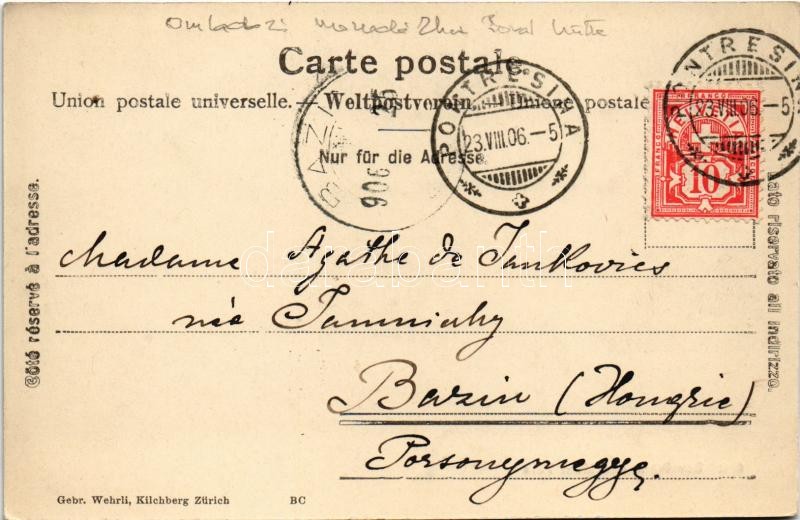 Carte postale.
Union postale universelle. — Weltpostverein. — Unione postale
Nur für die Adresse.
Côté réservé à l'adresse.
Lato riservato all'indirizzo.
PONTRESINA
23.VIII.06.–5
PONTRESINA
23.VIII.06.–5
BAZIN
906
25
FRANCO
HELVETIA
10
Madame Agathe de Jankovics
née
Bazin (Hongrie)
Porsonymegye.
Gebr. Wehrli, Kilchberg Zürich BC
darabanth